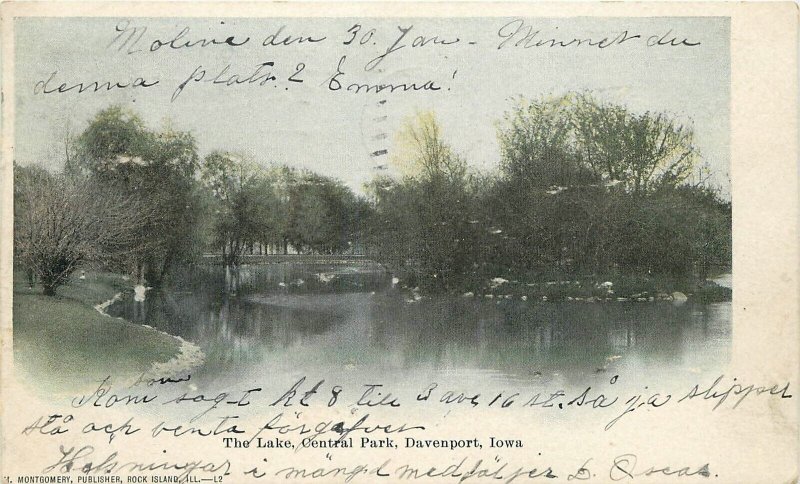 Moline den 30. Jan - Minnet du
denna plats? Emma!
som
Kom sagt kl 8 till 3 ave 16 st. så ja slipper
stå och venta förgäfver
The Lake, Central Park, Davenport, Iowa
Helsningar i mängd medföljer D. Oscar.
MONTGOMERY, PUBLISHER, ROCK ISLAND, ILL.—L2